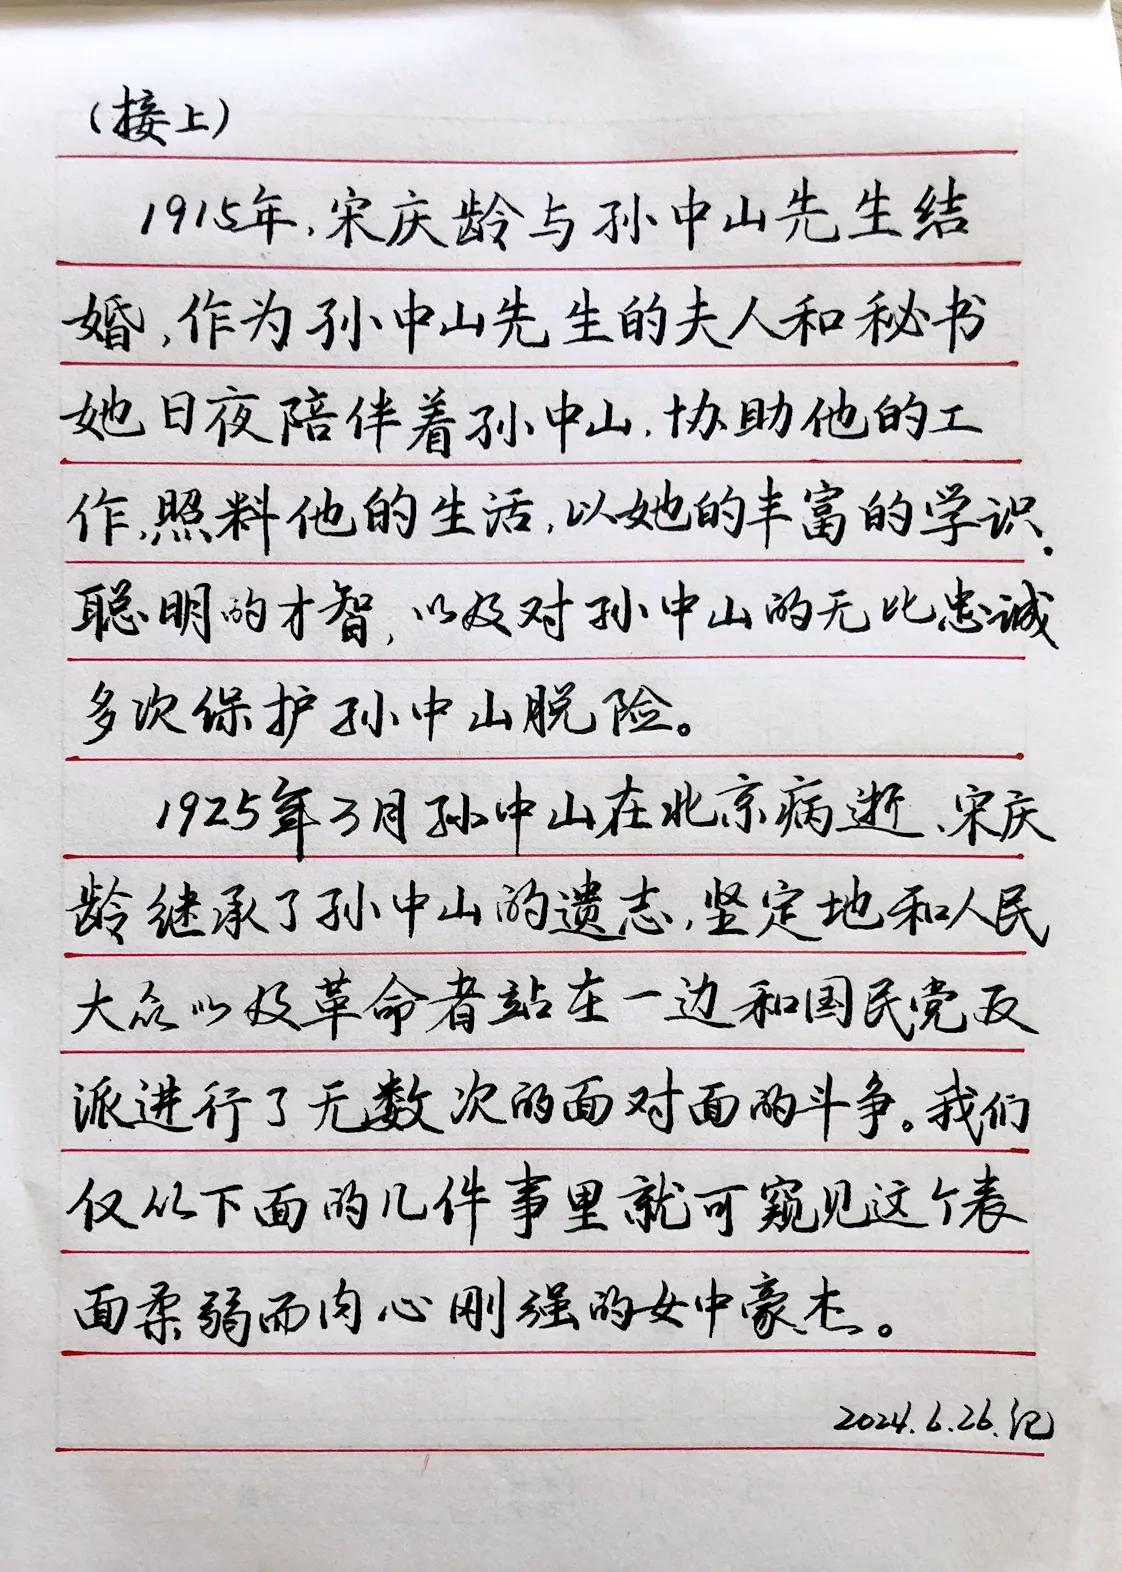 （接上）
1915年，宋庆龄与孙中山先生结
婚，作为孙中山先生的夫人和秘书
她日夜陪伴着孙中山，协助他的工
作，照料他的生活，以她的丰富的学识、
聪明的才智，以及对孙中山的无比忠诚
多次保护孙中山脱险。
1925年3月孙中山在北京病逝、宋庆
龄继承了孙中山的遗志，坚定地和人民
大众以及革命者站在一边和国民党反
派进行了无数次的面对面的斗争。我们
仅从下面的几件事里就可窥见这个表
面柔弱而内心刚强的女中豪杰。
2024.6.26.记